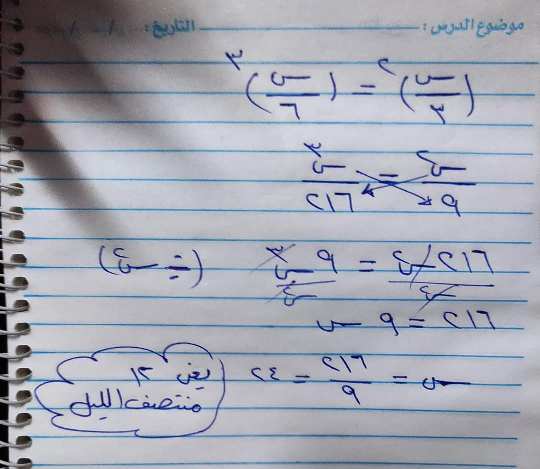 موضوع الدرس : التاريخ : / /
(س/٣)^٢ = (س/٦)^٣
س^٢/٩ = س^٣/٢١٦
٢١٦ س^٢/س^٢ = ٩ س^٣/س^٢ (÷ س^٢)
٢١٦ = ٩ س
س = ٢١٦/٩ = ٢٤
يعني ١٢
منتصف الليل